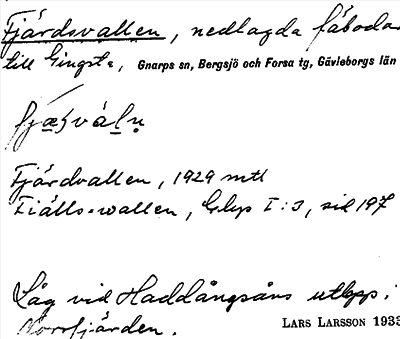 Fjärdsvallen, nedlagda fäbodar
till Gingsta, Gnarps sn, Bergsjö och Forsa tg, Gävleborgs län
fjæ̣ṣvȧlṇ
Fjärdvallen, 1929 mtl
Fiälls-wallen, Glep I:3, sid 197
Låg vid Haddångsåns utlopp i
Norrfjärden. LARS LARSSON 1933